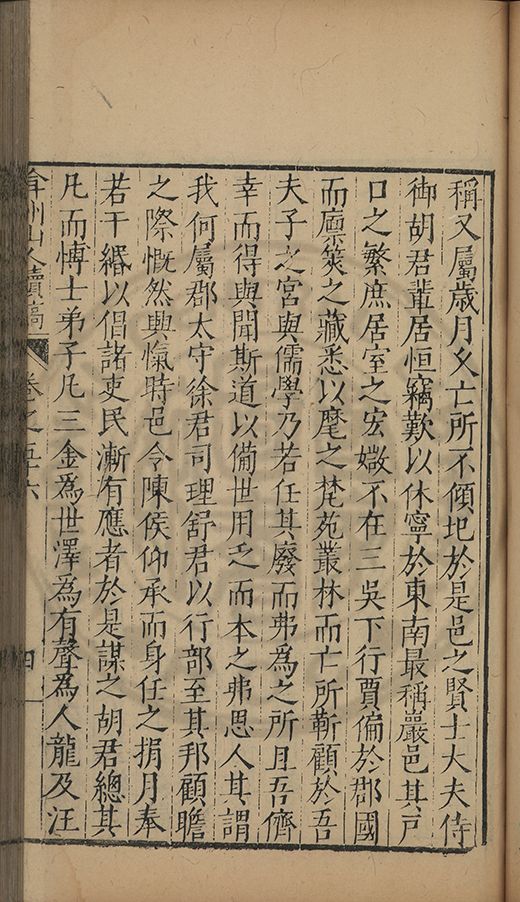 稱又屬歲月夂亡所不傾圯於是邑之賢士大夫侍
御胡君輩居恒竊歎以休寧於東南最稱嚴邑其戸
口之繁庶居室之宏媺不在三吳下行賈徧於郡國
而廩筴之藏悉以麾之梵苑叢林而亡所靳顧於吾
夫子之宮與儒學乃若任其廢而弗為之所且吾儕
幸而得與聞斯道以備世用乏而本之弗思人其謂
我何屬郡太守徐君司理舒君以行部至其邦顧瞻
之際慨然興愾時邑令陳侯仰承而身任之捐月奉
若干緡以倡諸吏民漸有應者於是謀之胡君總其
凡而愽士弟子凡三金為世澤為有聲為人龍及汪
弇州山人續稿 卷之五六 四